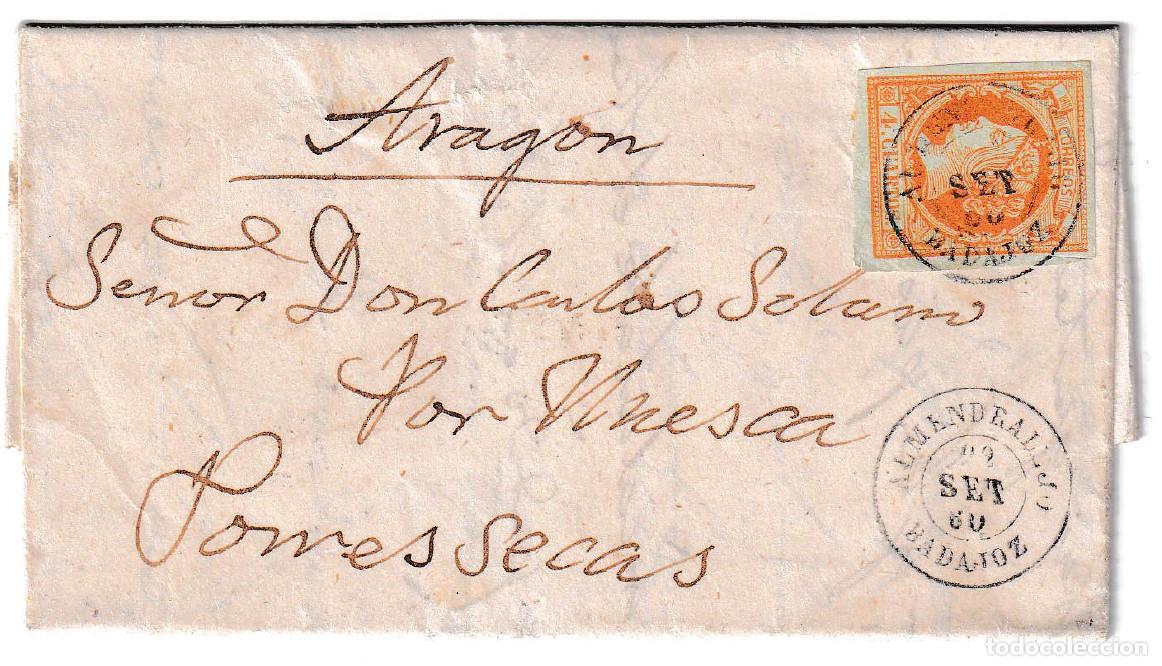 Aragon
Señor Don Carlos Solano
Por Huesca
Torres Secas
CORREOS
SET
60
BADAJOZ
ALMENDRALEJO
22
SET
60
BADAJOZ
todocoleccion